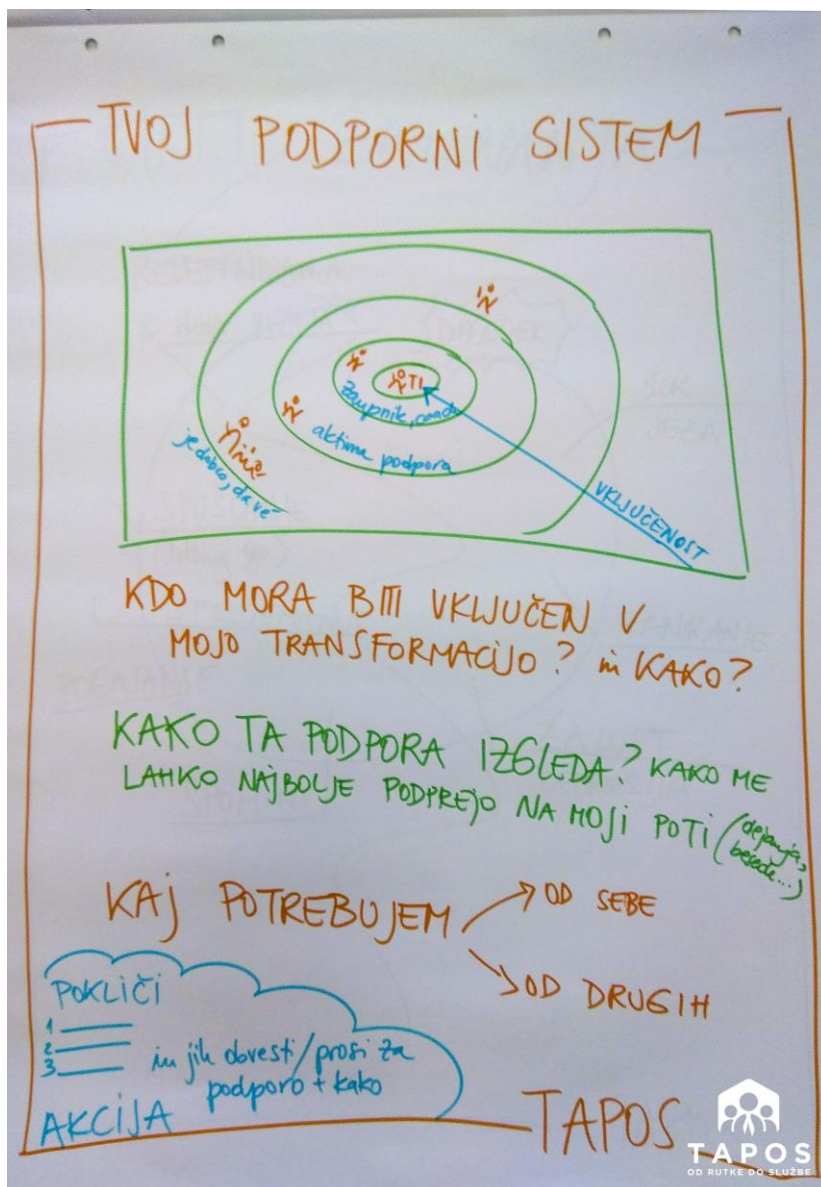 TVOJ PODPORNI SISTEM
TI
zaupnik, coach
aktivna podpora
je dobro, da ve
VKLJUČENOST
KDO MORA BITI VKLJUČEN V
MOJO TRANSFORMACIJO? in KAKO?
KAKO TA PODPORA IZGLEDA? KAKO ME
LAHKO NAJBOLJE PODPREJO NA MOJI POTI (dejanja,
besede...)
KAJ POTREBUJEM
OD SEBE
OD DRUGIH
POKLIČI
1
2
3
in jih obvesti/prosi za
podporo + kako
AKCIJA
TAPOS
TAPOS
OD RUTKE DO SLUŽBE